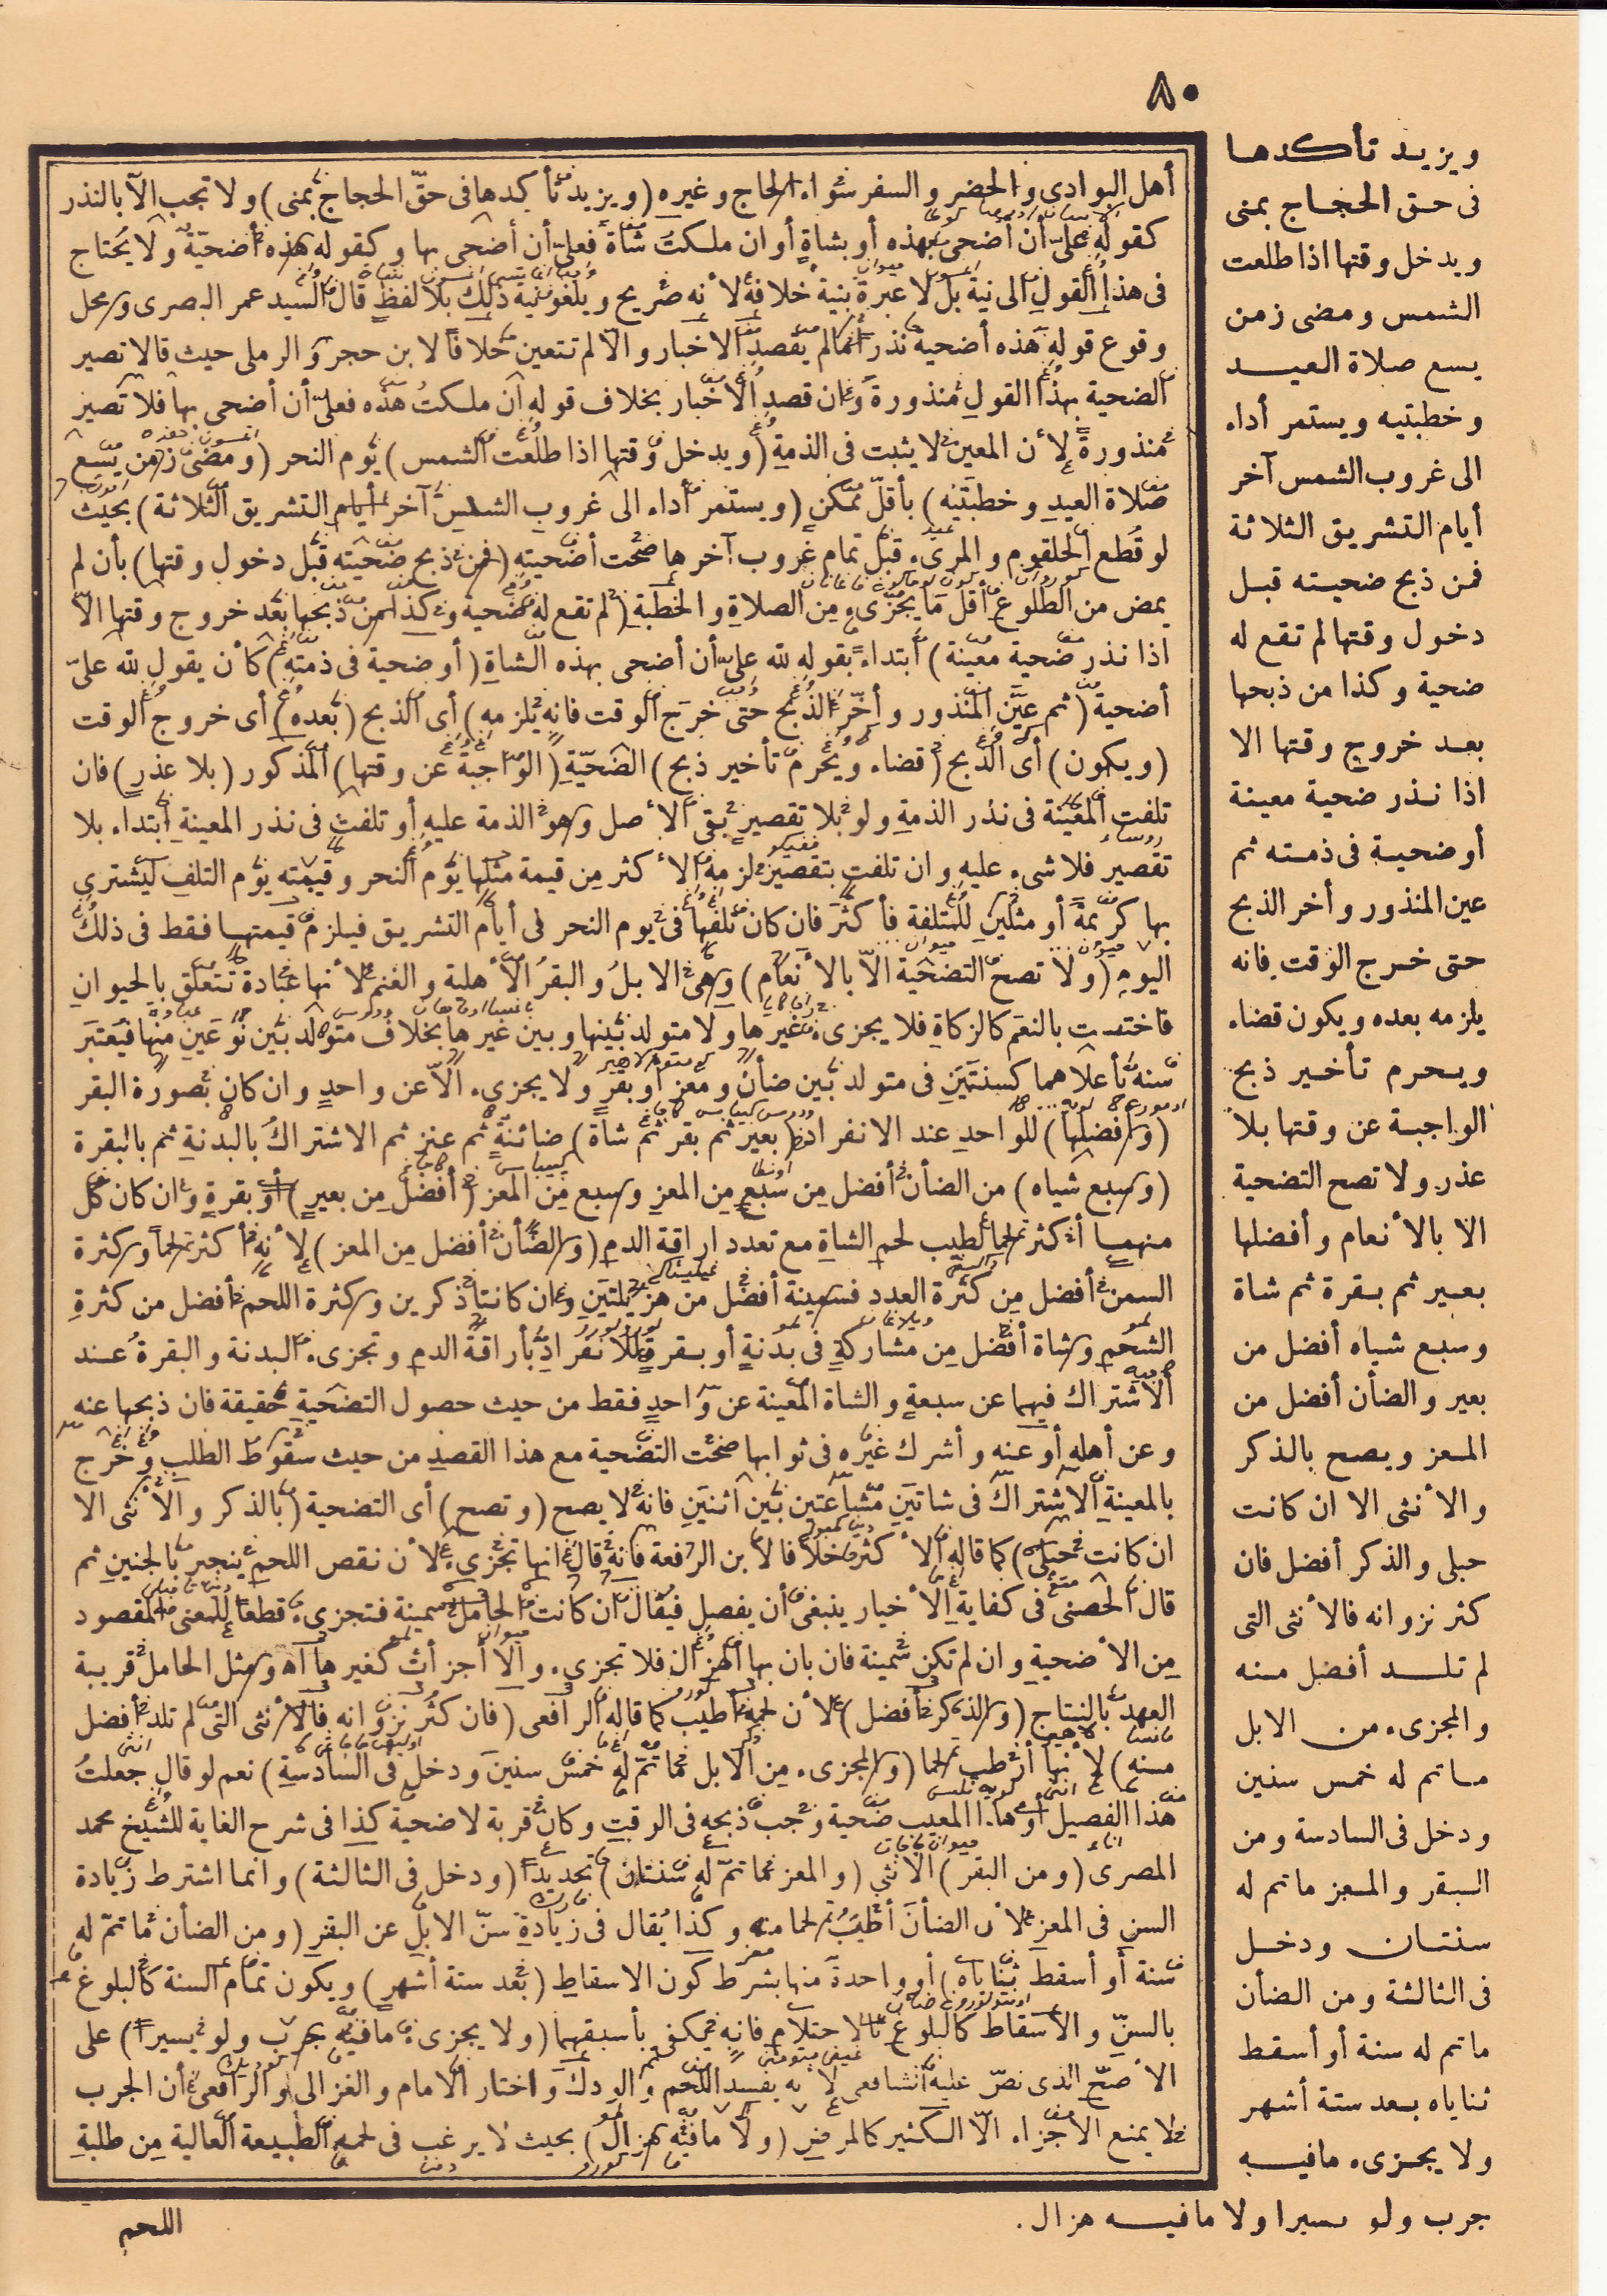 ٨٠
ويزيد تأكدها
فى حق الحجاج بمنى
ويدخل وقتها اذا طلعت
الشمس ومضى زمن
يسع صلاة العيد
وخطبتيه ويستمر أداء
الى غروب الشمس آخر
أيام التشريق الثلاثة
فمن ذبح ضحيته قبل
دخول وقتها لم تقع له
ضحية وكذا من ذبحها
بعد خروج وقتها الا
اذا نذر ضحية معينة
أو ضحية فى ذمته ثم
عين المنذور وأخر الذبح
حتى خرج الوقت فانه
يلزمه بعده ويكون قضاء
ويحرم تأخير ذبح
الواجبة عن وقتها بلا
عذر ولا تصح التضحية
الا بالأنعام وأفضلها
بعير ثم بقرة ثم شاة
وسبع شياه أفضل من
بعير والضأن أفضل من
المعز ويصح بالذكر
والأنثى الا ان كانت
حبلى والذكر أفضل فان
كثر نزوانه فالأنثى التى
لم تلد أفضل منه
والمجزىء من الابل
ما تم له خمس سنين
ودخل فى السادسة ومن
البقر والمعز ما تم له
سنتان ودخل
فى الثالثة ومن الضأن
ما تم له سنة أو أسقط
ثناياه بعد ستة أشهر
ولا يجزىء ما فيه
جرب ولو يسيرا ولا ما فيه هزال.
أهل البوادى والحضر والسفر سواء الحاج وغيره (ويزيد تأكدها فى حقّ الحجاج بمنى) ولا تجب الّا بالنذر
كقوله علىّ أن أضحى بهذه أو بشاةٍ أو ان ملكتُ شاة فعلىّ أن أضحى بها وكقوله هذه أضحيّة ولا يُحتاج
فى هذا القول الى نية بل لا عبرة بنية خلافه لأنه صريح ويلغو نية ذلك بلا لفظ قال السيد عمر البصرى ومحل
وقوع قوله هذه أضحية نذرا ما لم يقصد الاخبار والّا لم تتعين خلافا لابن حجر والرملى حيث قالا تصير
الضحية بهذا القول منذورة وان قصد الاخبار بخلاف قوله ان ملكتُ هذه فعلىّ أن أضحى بها فلا تصير
منذورة لأن المعين لا يثبت فى الذمة (ويدخل وقتها اذا طلعت الشمس) يوم النحر (ومضى زمن يسع
صلاة العيد وخطبتيه) بأقلّ ممكن (ويستمر أداء الى غروب الشمس آخر أيام التشريق الثلاثة) بحيث
لو قُطع الحلقوم والمرىء قبل تمام غروب آخرها صحت أضحيته (فمن ذبح ضحيته قبل دخول وقتها) بأن لم
يمض من الطلوع أقل ما يجزىء من الصلاة والخطبة (لم تقع له ضحية وكذا من ذبحها بعد خروج وقتها الّا
اذا نذر ضحية معينة) ابتداء بقوله لله علىّ أن أضحى بهذه الشاة (أو ضحية فى ذمته) كأن يقول لله علىّ
أضحية (ثم عيَّن المنذور وأخّر الذبح حتى خرج الوقت فانه يلزمه) أى الذبح (بعده) أى خروج الوقت
(ويكون) أى الذبح (قضاء ويُحرم تأخير ذبح) الضحيّة (الواجبة عن وقتها) المذكور (بلا عذر) فان
تلفت المعينة فى نذر الذمة ولو بلا تقصير بقى الأصل وهو الذمة عليه أو تلفت فى نذر المعينة ابتداء بلا
تقصير فلا شىء عليه وان تلفت بتقصير لزمه الأكثر من قيمة مثلها يوم النحر وقيمته يوم التلف ليشترى
بها كريمة أو مثلين للمتلفة فأكثر فان كان تلفها فى يوم النحر لى أيام التشريق فيلزم قيمتها فقط فى ذلك
اليوم (ولا تصح التضحية الّا بالأنعام) وهى الابل والبقر الأهلية والغنم لأنها عبادة تتعلق بالحيوان
فاختصت بالنعم كالزكاة فلا يجزىء غيرها ولا متولد بينها وبين غيرها بخلاف متولد بين نوعين منها فيعتبر
سنه بأعلاهما كسنتين فى متولد بين ضأن ومعز أو بقر ولا يجزىء الّا عن واحد وان كان بصورة البقر
(وأفضلها) للواحد عند الانفراد (بعير ثم بقر ثم شاة) ضائنة ثم عنز ثم الاشتراك بالبدنة ثم بالبقرة
(وسبع شياه) من الضأن أفضل من سبع من المعز وسبع من المعز (أفضل من بعير) أو بقرة وان كان كل
منهما أكثر لحما لطيب لحم الشاة مع تعدد اراقة الدم (والضأن أفضل من المعز) لأنه أكثر لحما وكثرة
السمن أفضل من كثرة العدد فسمينة أفضل من هزيلتين وان كانتا ذكرين وكثرة اللحم أفضل من كثرة
الشحم وشاة أفضل من مشاركة فى بدنة أو بقرة للانفراد بأراقة الدم وتجزىء البدنة والبقرة عند
الاشتراك فيهما عن سبعة والشاة المعينة عن واحد فقط من حيث حصول التضحية حقيقة فان ذبحها عنه
وعن أهله أو عنه وأشرك غيره فى ثوابها صحت التضحية مع هذا القصد من حيث سقوط الطلب وخرج
بالمعينة الاشتراك فى شاتين مشاعتين بين اثنين فانه لا يصح (وتصح) أى التضحية (بالذكر والأنثى الا
ان كانت حبلى) كما قاله الأكثر خلافا لابن الرفعة فانه قال انها تجزىء لأن نقص اللحم ينجبر بالجنين ثم
قال الحصنى فى كفاية الأخيار ينبغى أن يفصل فيقال ان كانت الحامل سمينة فتجزىء قطعا للمعنى المقصود
من الأضحية وان لم تكن سمينة فان بان بها الهزال فلا تجزىء والّا أجزأت كغيرها اه ومثل الحامل قريبة
العهد بالنتاج (والذكر أفضل) لأن لحمه أطيب كما قاله الرافعى (فان كثر نزوانه فالأنثى التى لم تلد أفضل
منه) لأنها أرطب لحما (والمجزىء من الابل ما تمّ له خمس سنين ودخل فى السادسة) نعم لو قال جعلتُ
هذا الفصيل أو هذا المعيب ضحية وجب ذبحه فى الوقت وكان قربة لا ضحية كذا فى شرح الغاية للشيخ محمد
المصرى (ومن البقر) الانثى (والمعز ما تمّ له سنتان) تحديدا (ودخل فى الثالثة) وانما اشترط زيادة
السن فى المعز لأن الضأن أطيب لحما منه وكذا يُقال فى زيادة سنّ الابل عن البقر (ومن الضأن ما تمّ له
سنة أو أسقط ثناياه) أو واحدة منها بشرط كون الاسقاط (بعد ستة أشهر) ويكون تمام السنة كالبلوغ
بالسنّ والاسقاط كالبلوغ بالاحتلام فانه يكفى بأسبقهما (ولا يجزىء ما فيه جرب ولو يسيرا) على
الأصحّ الذى نصّ عليه الشافعى لأنه يفسد اللحم والودك واختار الامام والغزالى والرافعى أن الجرب
لا يمنع الاجزاء الّا الكثير كالمرض (ولا ما فيه هزال) بحيث لا يرغب فى لحمه الطبيعة العالية من طلبة
اللحم